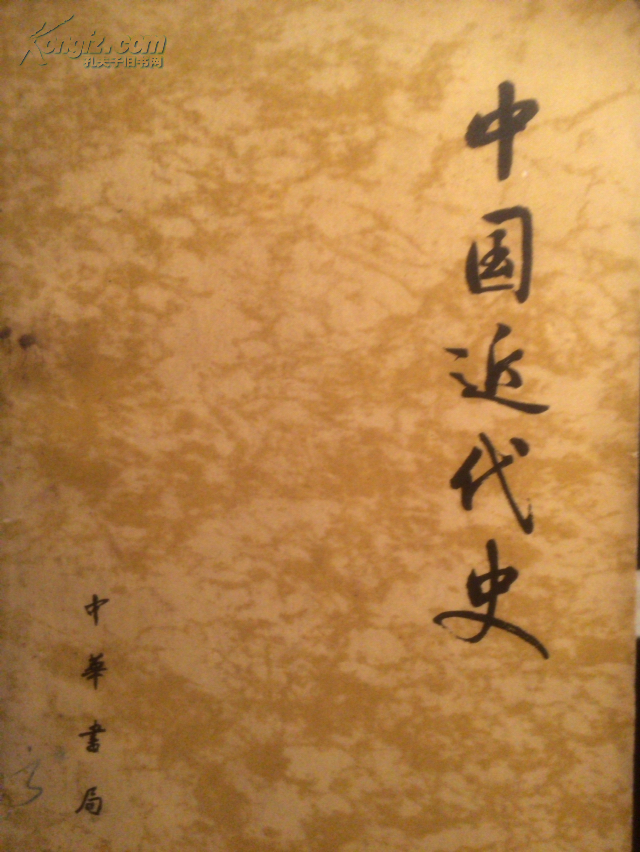 Kongfz.com
孔夫子旧书网
中国近代史
中華書局